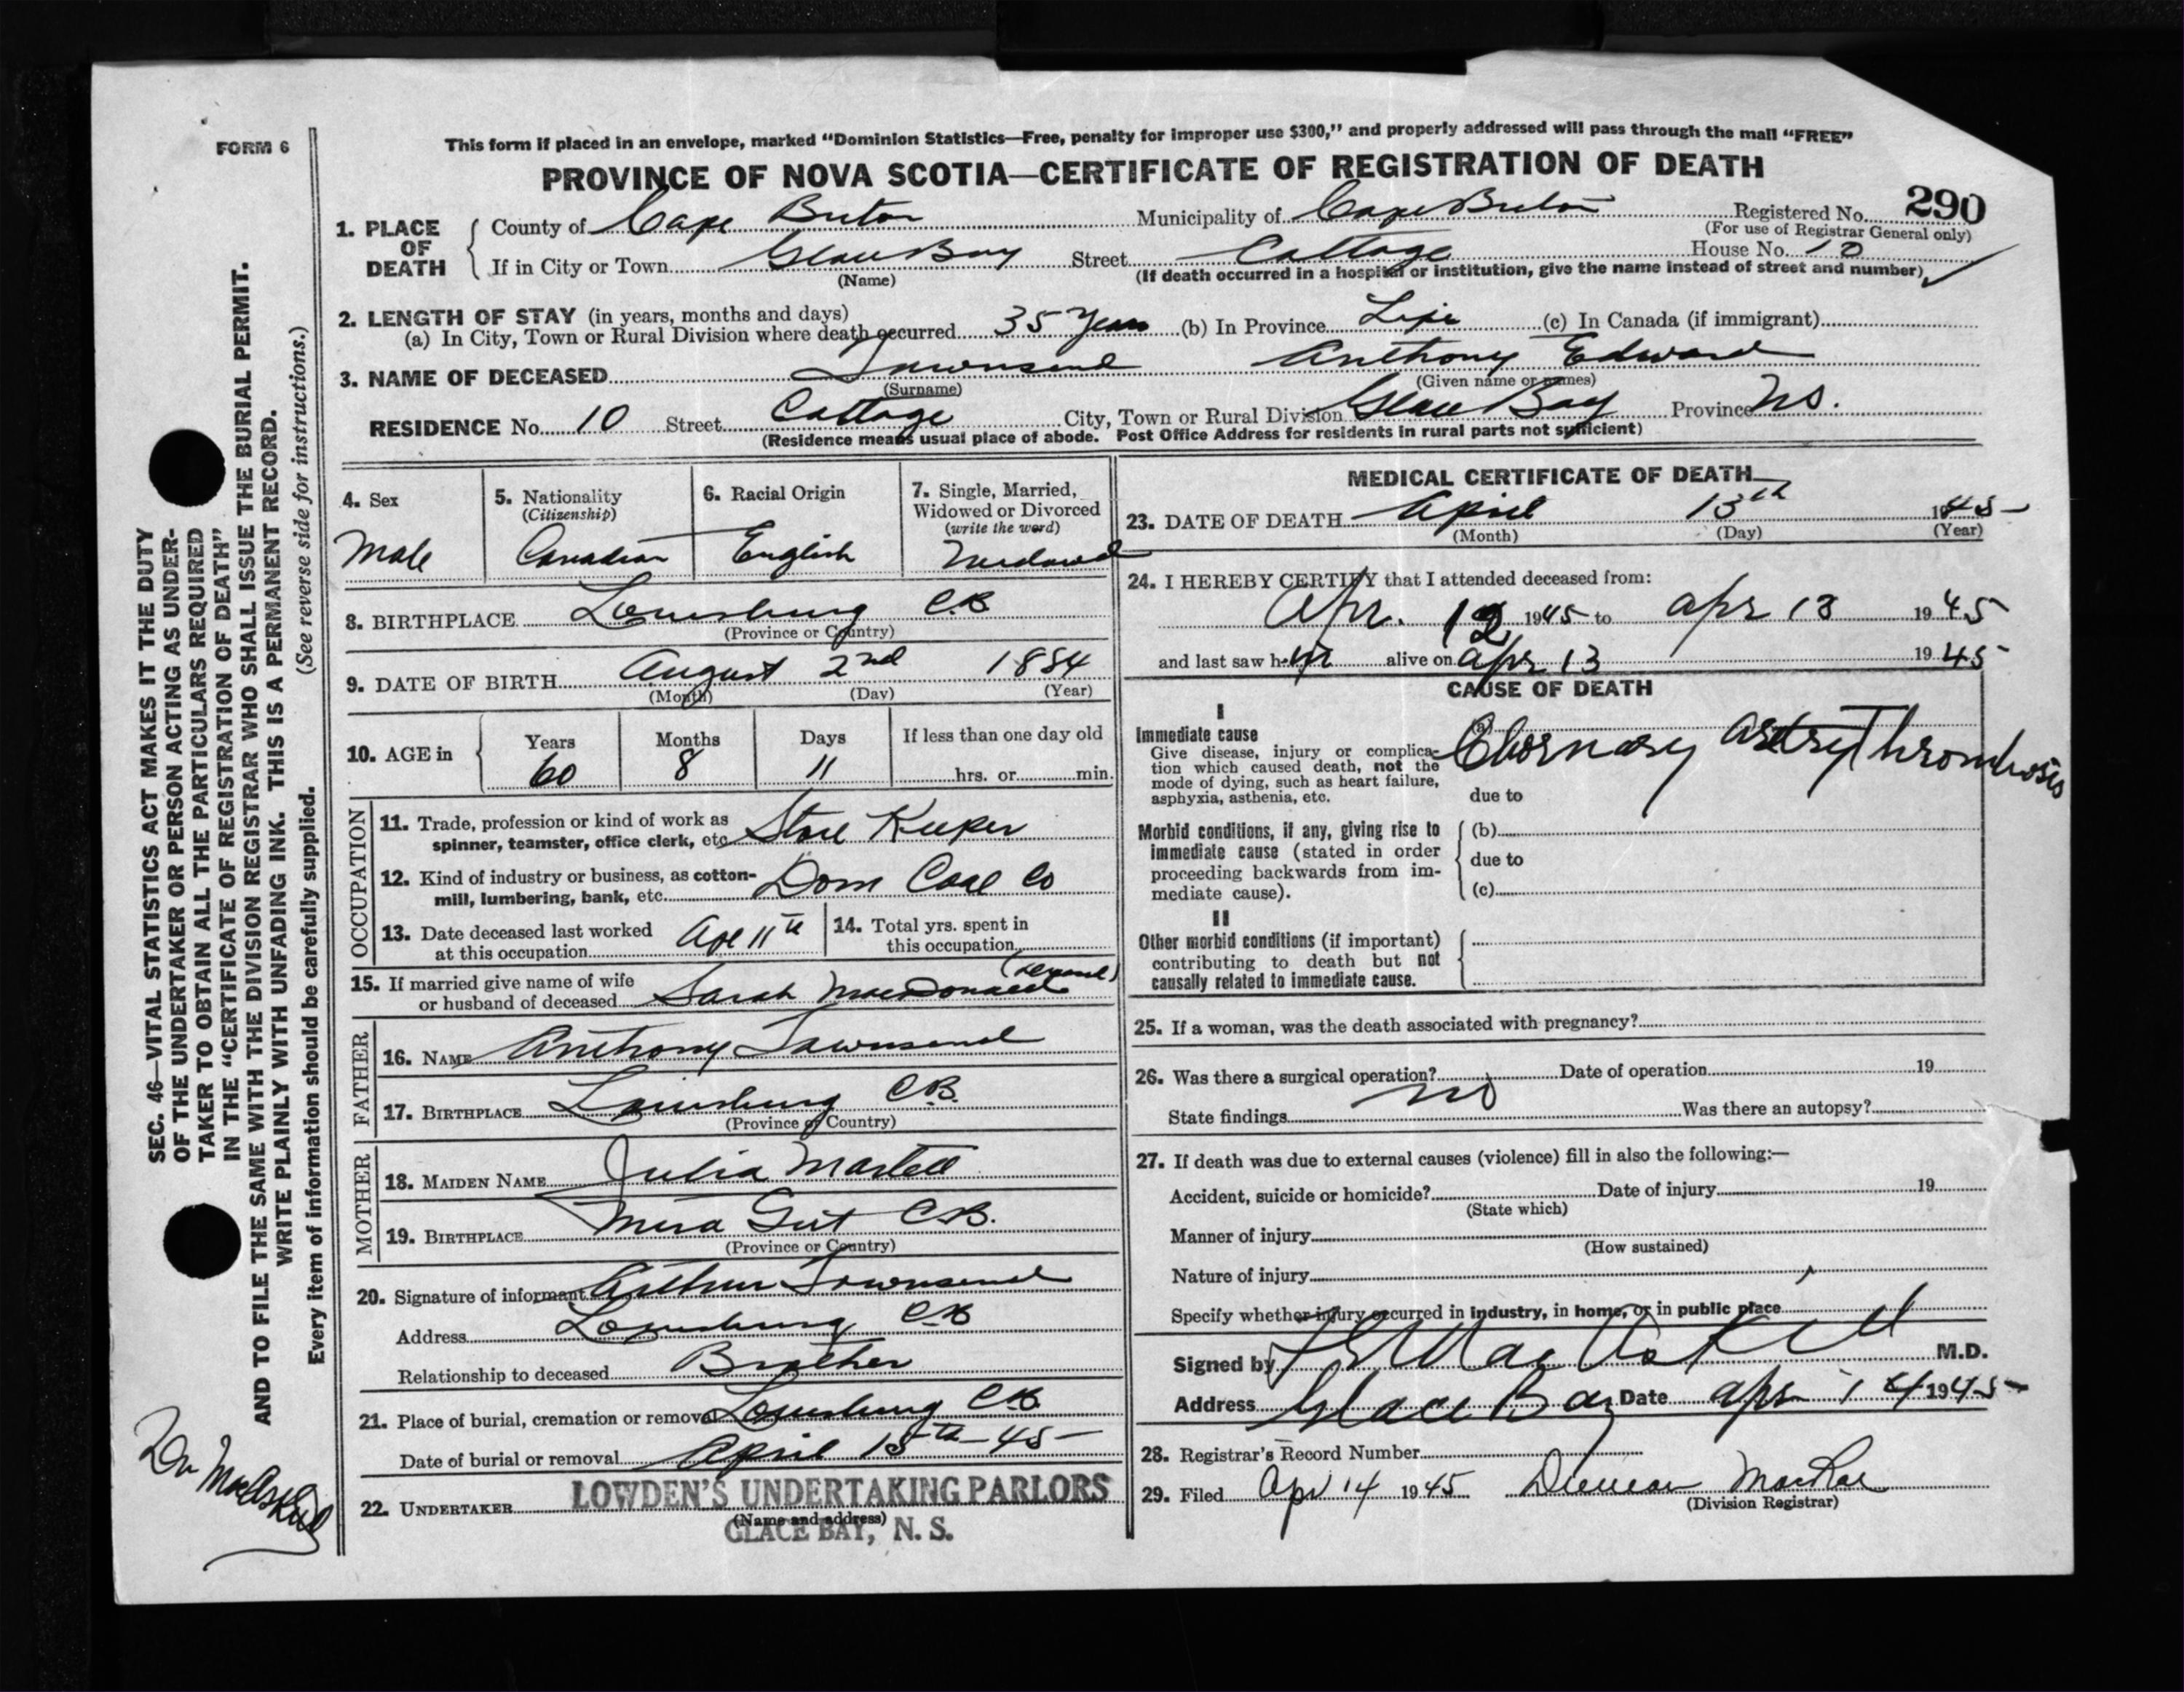 FORM 6
This form if placed in an envelope, marked “Dominion Statistics—Free, penalty for improper use $300,” and properly addressed will pass through the mail “FREE”
PROVINCE OF NOVA SCOTIA—CERTIFICATE OF REGISTRATION OF DEATH
290
1. PLACE OF DEATH
County of Cape Breton Municipality of Cape Breton Registered No.
(For use of Registrar General only)
If in City or Town Glace Bay Street Cottage House No. 10
(Name) (If death occurred in a hospital or institution, give the name instead of street and number)
2. LENGTH OF STAY (in years, months and days)
(a) In City, Town or Rural Division where death occurred 35 Years (b) In Province Life (c) In Canada (if immigrant)
3. NAME OF DECEASED Townsend Anthony Edward
(Surname) (Given name or names)
RESIDENCE No. 10 Street Cottage City, Town or Rural Division Glace Bay Province N.S.
(Residence means usual place of abode. Post Office Address for residents in rural parts not sufficient)
4. Sex
Male
5. Nationality
(Citizenship)
Canadian
6. Racial Origin
English
7. Single, Married,
Widowed or Divorced
(write the word)
Widowed
8. BIRTHPLACE Louisburg C.B.
(Province or Country)
9. DATE OF BIRTH August 2nd 1884
(Month) (Day) (Year)
10. AGE in
Years Months Days If less than one day old
60 8 11 hrs. or min.
OCCUPATION
11. Trade, profession or kind of work as
spinner, teamster, office clerk, etc. Store Keeper
12. Kind of industry or business, as cotton-
mill, lumbering, bank, etc. Dom Coal Co
13. Date deceased last worked
at this occupation Ap 11th
14. Total yrs. spent in
this occupation
15. If married give name of wife
or husband of deceased Sarah MacDonald
FATHER
16. NAME Anthony Townsend
17. BIRTHPLACE Louisburg C.B.
(Province or Country)
MOTHER
18. MAIDEN NAME Julia Martell
19. BIRTHPLACE Mira Gut C.B.
(Province or Country)
20. Signature of informant Arthur Townsend
Address Louisburg C.B
Relationship to deceased Brother
21. Place of burial, cremation or removal Louisburg C.B.
Date of burial or removal April 15th - 45
22. UNDERTAKER LOWDEN'S UNDERTAKING PARLORS
(Name and address)
GLACE BAY, N. S.
MEDICAL CERTIFICATE OF DEATH
23. DATE OF DEATH April 13th 1945
(Month) (Day) (Year)
24. I HEREBY CERTIFY that I attended deceased from:
Apr. 12 1945 to Apr 13 1945
and last saw him alive on Apr 13 1945
CAUSE OF DEATH
I
Immediate cause
Give disease, injury or complica-
tion which caused death, not the
mode of dying, such as heart failure,
asphyxia, asthenia, etc.
(a) Chornary Artry Thrombosis
due to
Morbid conditions, if any, giving rise to
immediate cause (stated in order
proceeding backwards from im-
mediate cause).
(b)
due to
(c)
II
Other morbid conditions (if important)
contributing to death but not
causally related to immediate cause.
25. If a woman, was the death associated with pregnancy?
26. Was there a surgical operation? no Date of operation 19
State findings Was there an autopsy?
27. If death was due to external causes (violence) fill in also the following:—
Accident, suicide or homicide? Date of injury 19
(State which)
Manner of injury
(How sustained)
Nature of injury
Specify whether injury occurred in industry, in home, or in public place
Signed by MacAskill M.D.
Address Glace Bay Date Apr 14 1945
28. Registrar's Record Number
29. Filed Apr 14 1945 Duncan MacRae
(Division Registrar)
SEC. 46—VITAL STATISTICS ACT MAKES IT THE DUTY
OF THE UNDERTAKER OR PERSON ACTING AS UNDER-
TAKER TO OBTAIN ALL THE PARTICULARS REQUIRED
IN THE “CERTIFICATE OF REGISTRATION OF DEATH”
AND TO FILE THE SAME WITH THE DIVISION REGISTRAR WHO SHALL ISSUE THE BURIAL PERMIT.
WRITE PLAINLY WITH UNFADING INK. THIS IS A PERMANENT RECORD.
Every item of information should be carefully supplied. (See reverse side for instructions.)
Dr MacAskill